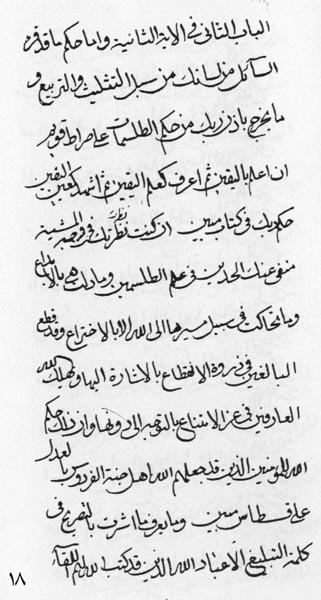 الباب الثانى فى الاية الثانية واما حكم ما قد قرء
السائل من لسانك من سبل التثليث والتربيع و
ما يخرج باذن ربك من حكم الطلسمات على صراط قويم
ان اعلم باليقين ثم اعرف كعلم اليقين ثم اشهد كعين اليقين
حكم ربك فى كتاب مبين ان كنت نظرتك فى وجهة المشية
منفى عنك الحدين فى علم الطلسمين
وما تحاكت فى سبل سيرها الى الله الا بالاختراع وقد قطع
البالغين فى ذروة الانقطاع بالاشارة اليها وهلك الله
العارفين فى عز الامتناع بالتوجه الى دونها وان ذلك حكم
الله للمؤمنين الذين قد جعلهم الله اهل جنة الفردوس بالعدل
على قسطاس مبين وما يعرف ما اشرت بالتصريح فى
كلمة التبليغ الا عباد الله الذين قد كتب الله لهم اللقآء
١٨